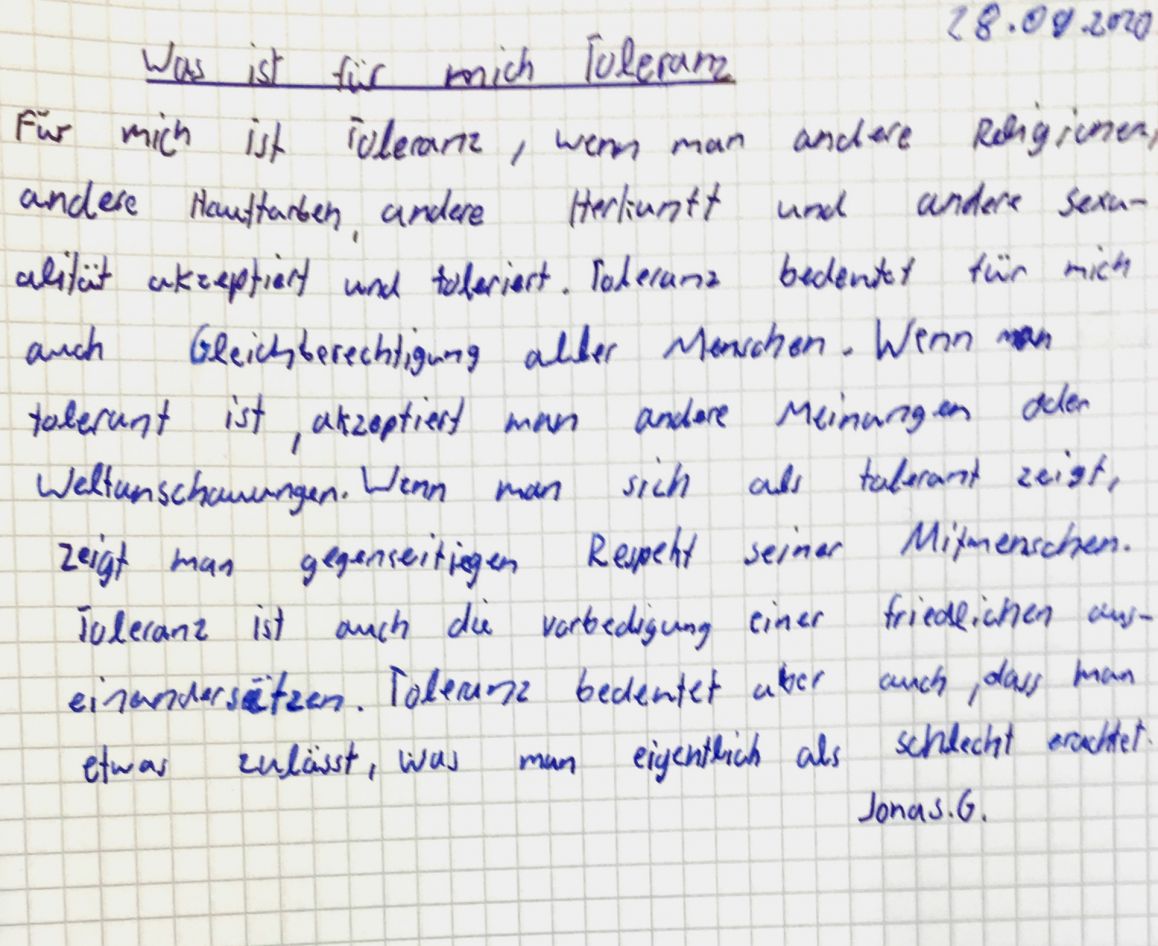 28.09.2020
Was ist für mich Toleranz
Für mich ist Toleranz, wenn man andere Religionen,
andere Hautfarben, andere Herkunft und andere sexu-
alität akzeptiert und toleriert. Toleranz bedeutet für mich
auch Gleichberechtigung aller Menschen. Wenn man
tolerant ist, akzeptiert man andere Meinungen oder
Weltanschauungen. Wenn man sich als tolerant zeigt,
zeigt man gegenseitigen Respekt seiner Mitmenschen.
Toleranz ist auch die vorbedigung einer friedlichen aus-
einandersetzen. Toleranz bedeutet aber auch, dass man
etwas zulässt, was man eigentlich als schlecht erachtet.
Jonas.G.